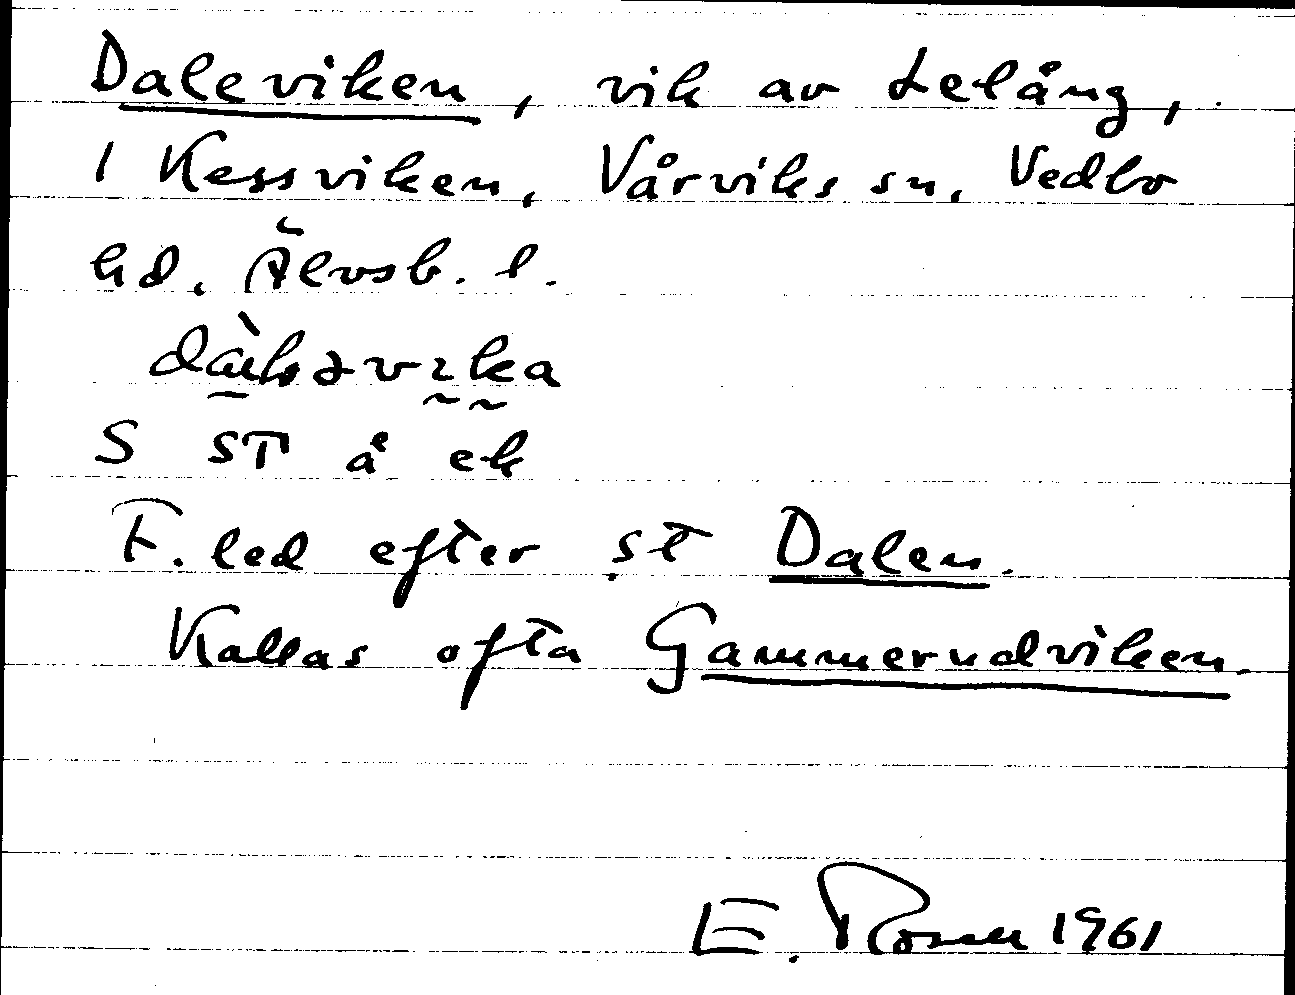 Daleviken, vik av Lelång,
1 Kessviken, Vårviks sn, Vedbo
hd, Älvsb. l.
S ST å ek
F. led efter st Dalen.
Kallas ofta Gammerudviken.
E. 1961